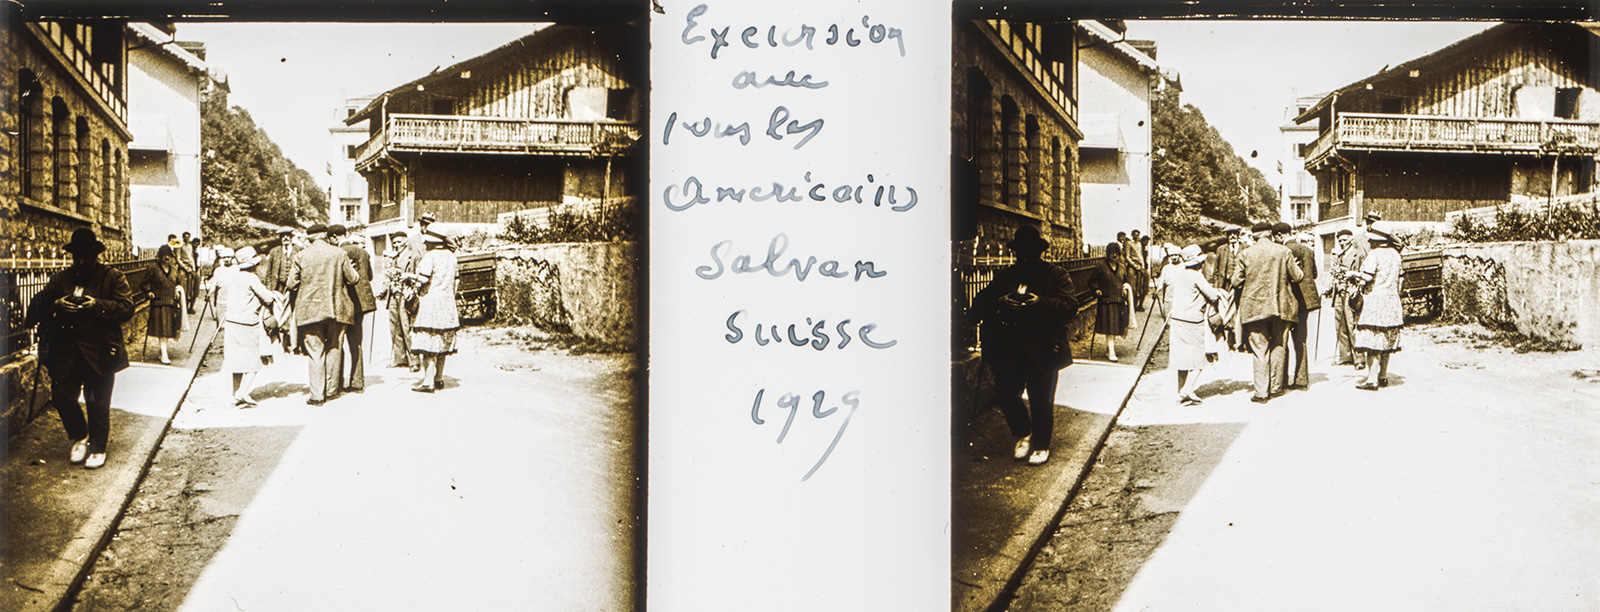 Excursion
avec
tous les
Americains
Salvan
Suisse
1929